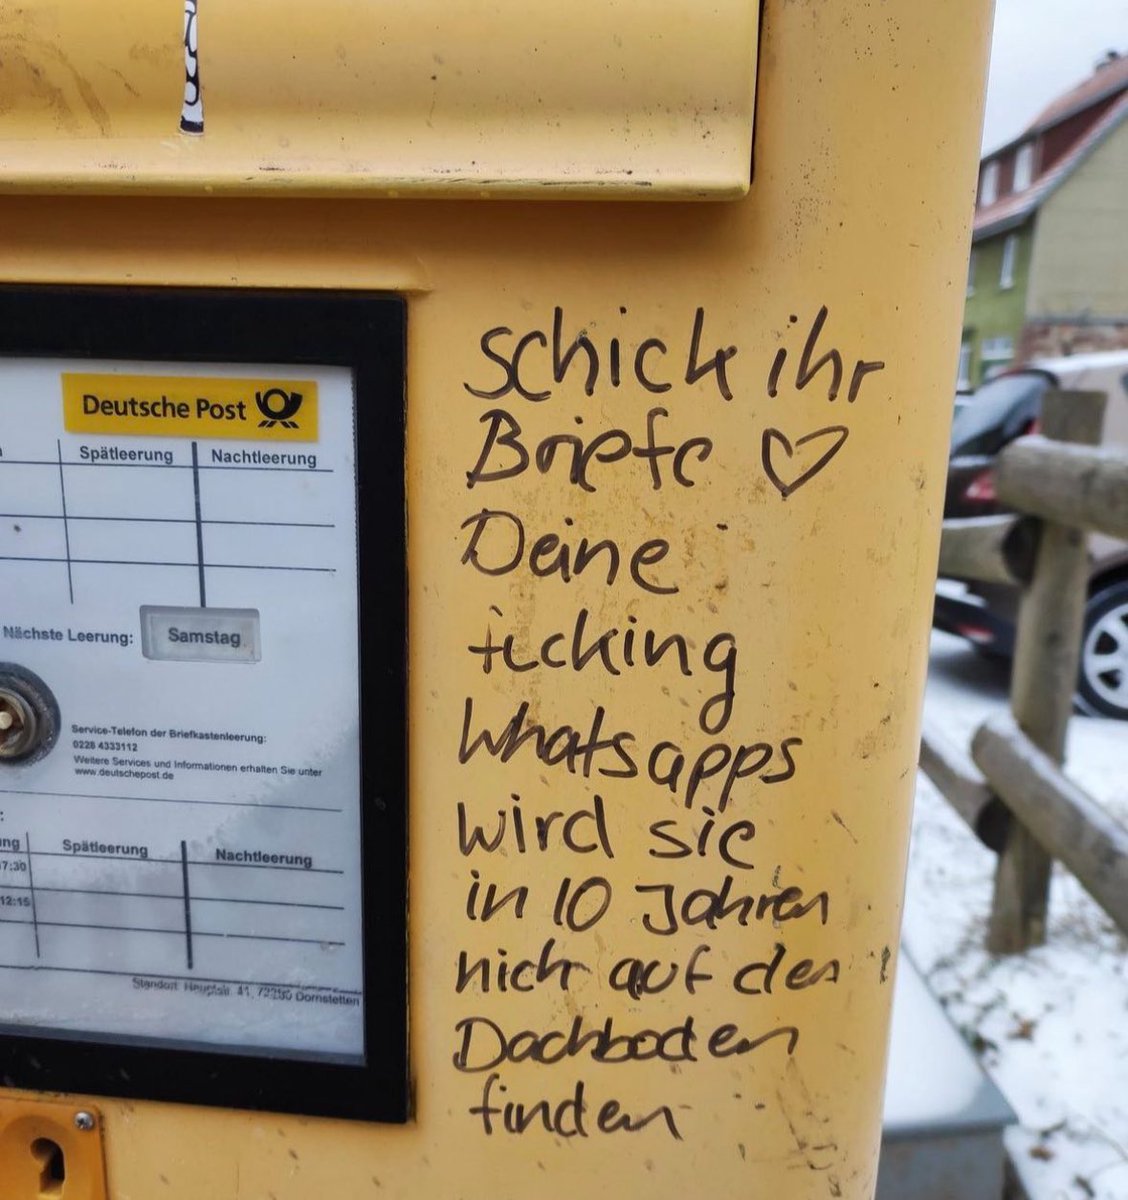 Deutsche Post
Spätleerung Nachtleerung
Nächste Leerung: Samstag
Service-Telefon der Briefkastenleerung:
0228 4333112
Weitere Services und Informationen erhalten Sie unter
www.deutschepost.de
Spätleerung Nachtleerung
17:30
12:15
Standort: Hauptstr. 41, 72280 Dornstetten
Schick ihr
Briefe ♡
Deine
fucking
Whatsapps
wird sie
in 10 Jahren
nich auf den
Dachboden
finden